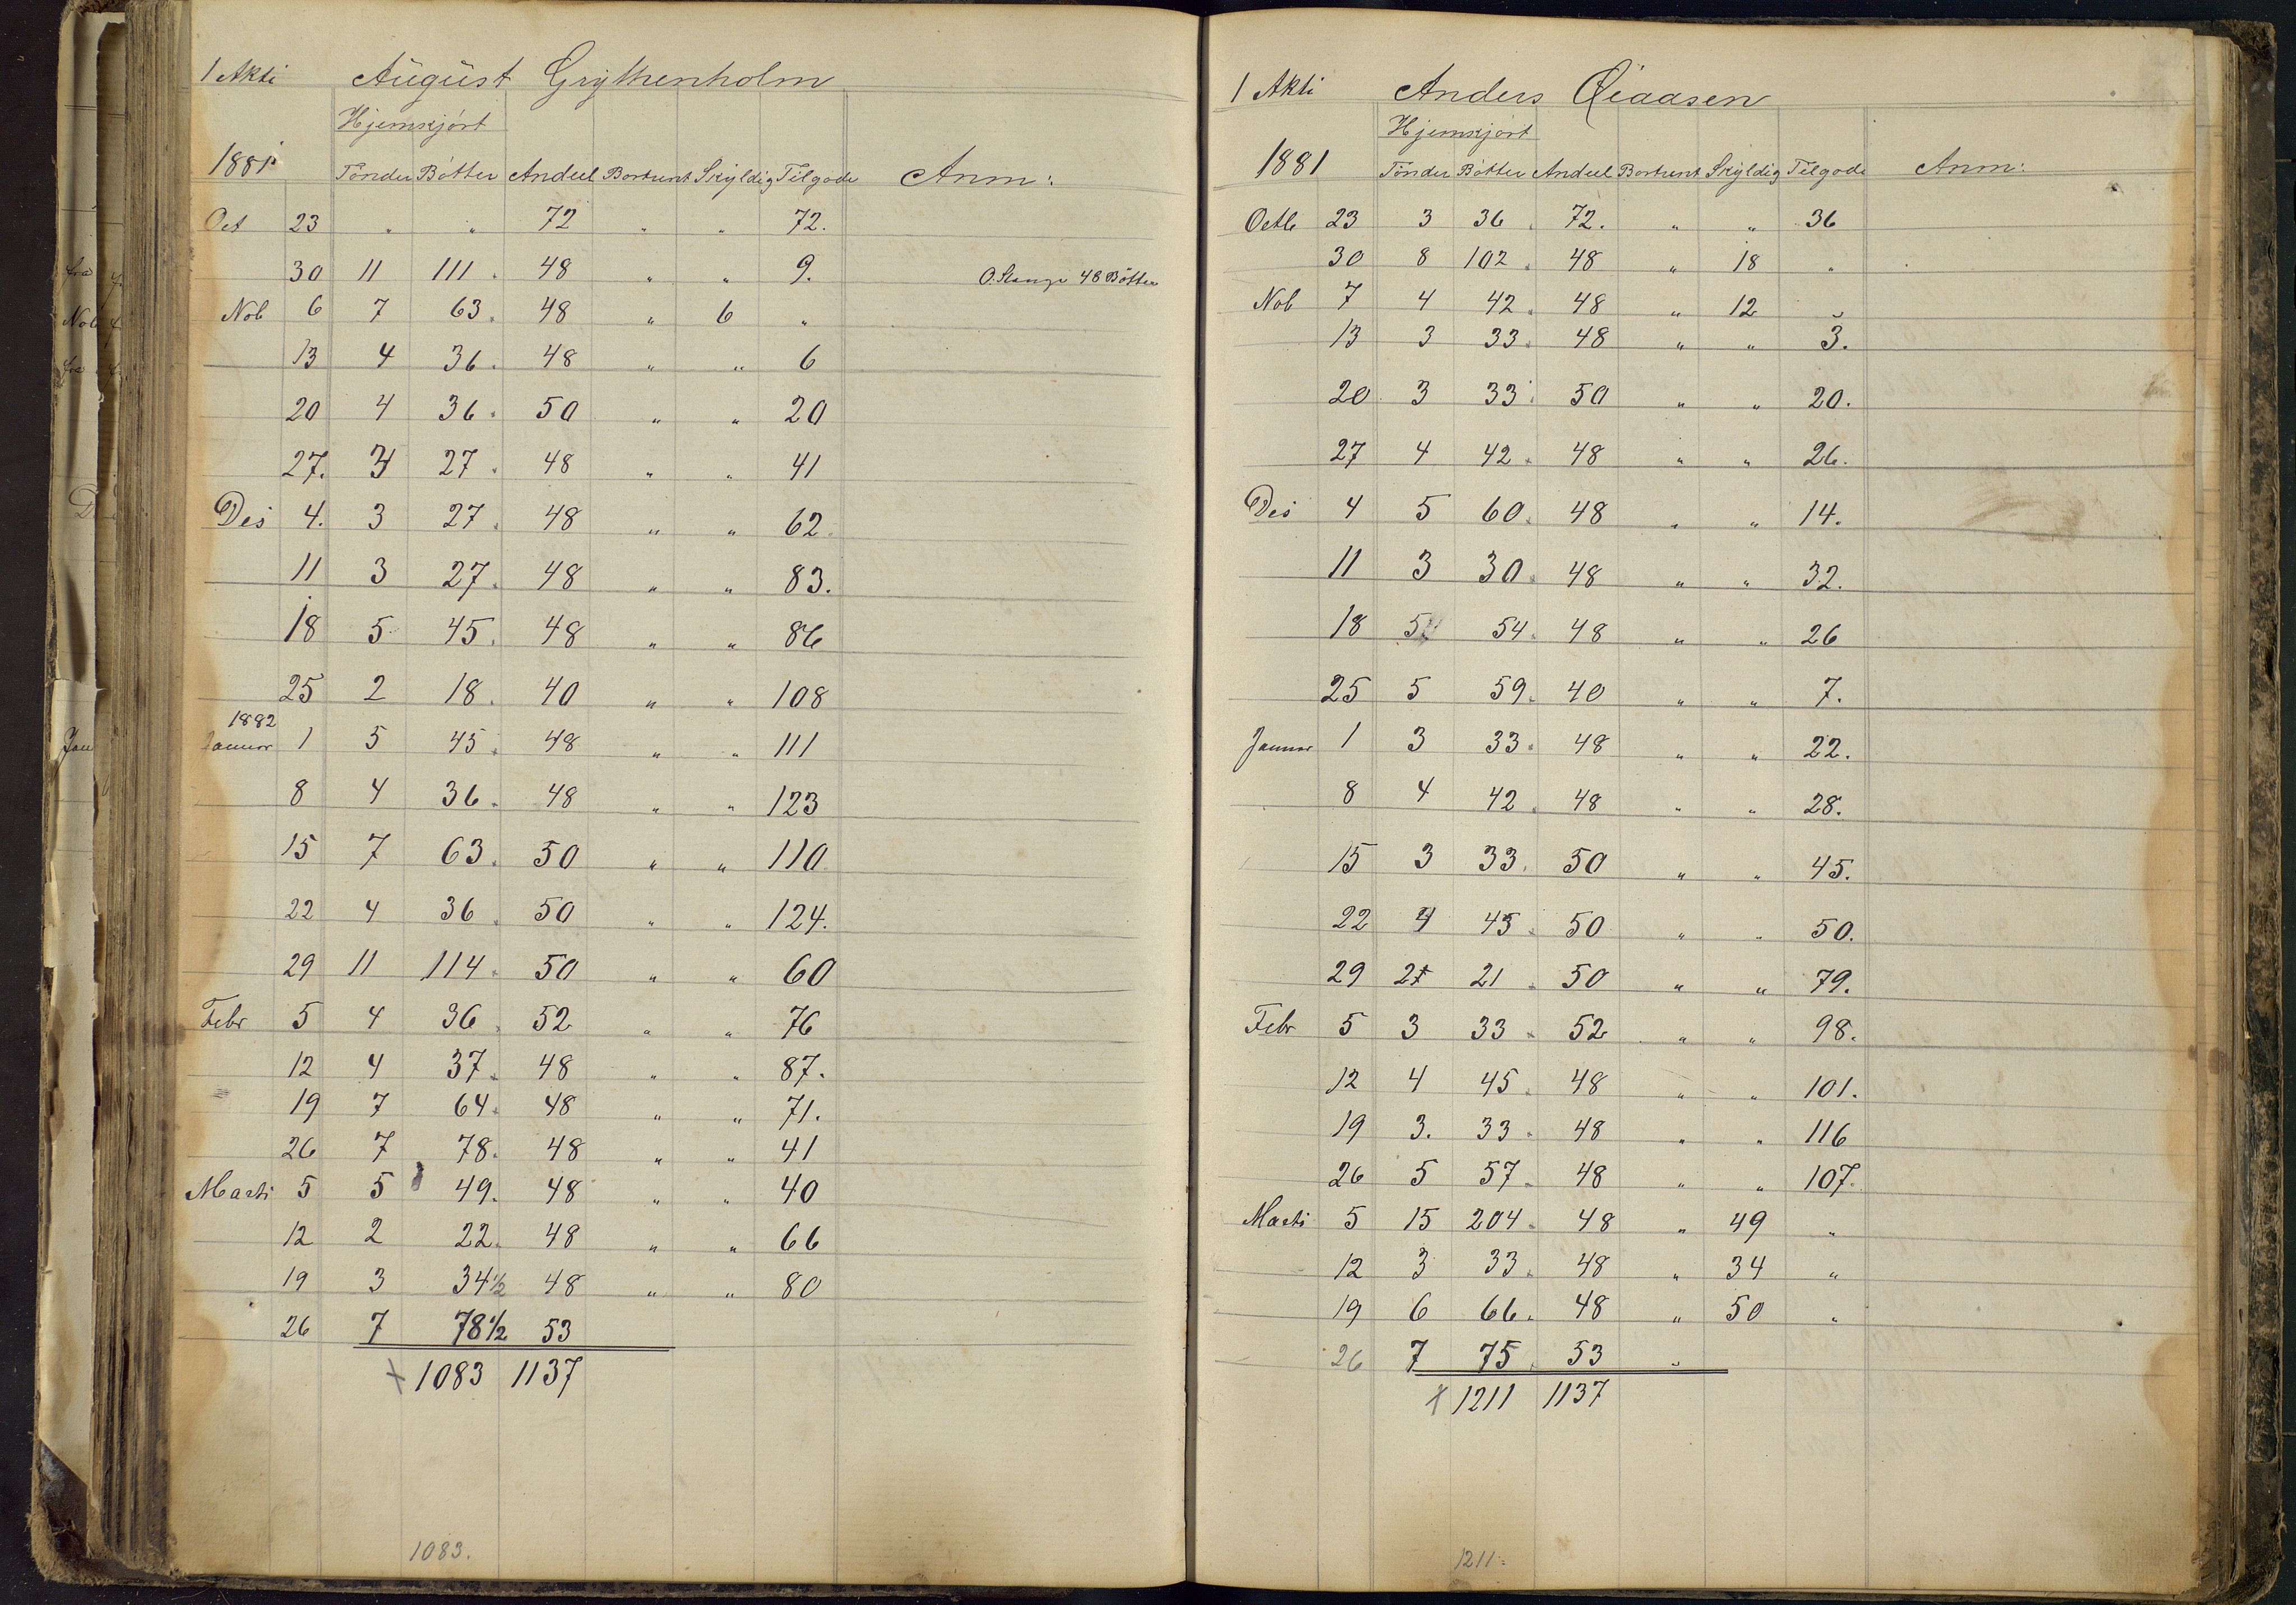 1 Akti August Grythenholm
Hjemkjört
1881 Tönder Bötter Andeel Bortsent Skyldig Tilgode Anm:
Oct 23 " " 72 " " 72.
30 11 111. 48 " " 9. O. Stange 48 Bötter
Nob 6 7 63. 48 " 6 "
13 4 36. 48 " " 6
20 4 36. 50 " " 20
27. 3 27. 48 " " 41
Des 4. 3 27. 48 " " 62.
11 3 27. 48 " " 83.
18 5 45. 48 " " 86
25 2 18. 40 " " 108
1882
Januar 1 5 45. 48 " " 111
8 4 36. 48 " " 123
15 7 63. 50 " " 110.
22 4 36. 50 " " 124.
29 11 114. 50 " " 60
Febr 5 4 36. 52 " " 76
12 4 37. 48 " " 87.
19 7 64. 48 " " 71.
26 7 78. 48 " " 41
Marti 5 5 49. 48 " " 40
12 2 22. 48 " " 66
19 3 34½ 48 " " 80
26 7 78½ 53
+ 1083 1137
1083.
1 Akti Anders
Hjemkjört
1881 Tönder Bötter Andeel Bortsent Skyldig Tilgode Anm:
Octb 23 3 36. 72. " " 36
30 8 102. 48 " 18 "
Nob 7 4 42. 48 " 12 "
13 3 33. 48 " " 3.
20. 3 33. 50 " " 20.
27 4 42. 48 " " 26.
Des 4 5 60. 48 " " 14.
11 3 30. 48 " " 32.
18 5 54. 48 " " 26
25 5 59. 40 " " 7.
Januar 1 3 33. 48 " " 22.
8 4 42. 48 " " 28.
15 3 33. 50 " " 45.
22 4 45. 50 " " 50.
29 2 21. 50 " " 79.
Febr 5 3 33. 52 " " 98.
12 4 45. 48 " " 101.
19 3. 33. 48 " " 116
26 5 57. 48 " " 107.
Marti 5 15 204. 48 " 49 "
12 3 33. 48 " 34 "
19 6 66. 48 " 50 "
26 7 75. 53 "
+ 1211 1137
1211.